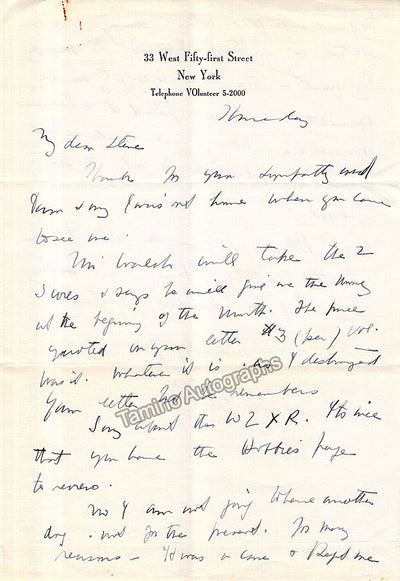 33 West Fifty-first Street
New York
Telephone VOlunteer 5-2000
Thursday
My dear Steve
Thanks for your sympathy and
I am sorry I was not home when you came
to see me.
Mr Walsh will take the 2
Scores & says he will give me the money
at the beginning of the month. The price
quoted in your letter (per) vol.
was it. Whatever it is I destroyed
your letter he remembers
Tamino Autographs
Sorry about the WZXR. It's nice
that you have the Hobbies page
to review.
No I am not going to have another
dog. not for the present. For many
reasons – It was a & kept me